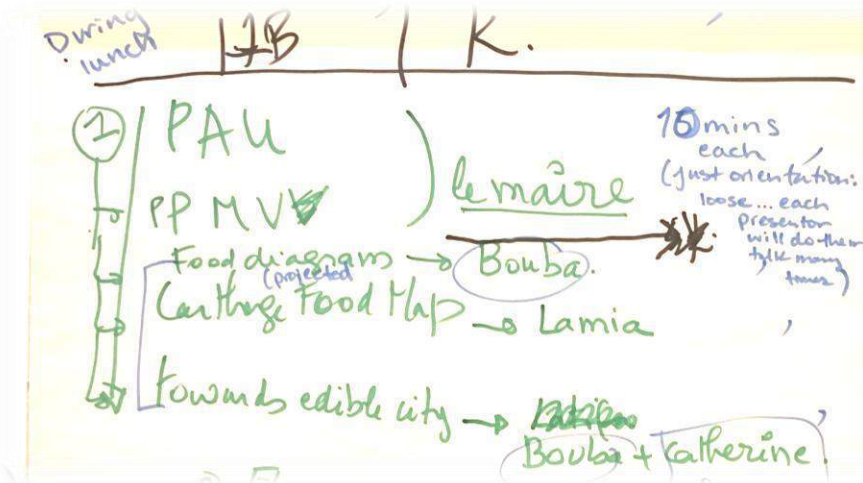 During
lunch
17B
K.
1
PAU
PPMV
le maire
Food diagrams → Bouba.
(projected
Carthage Food Map → Lamia
towards edible city →
Bouba + Catherine
10 mins
each
(just orientation:
loose... each
presentor
will do their
talk many
times)